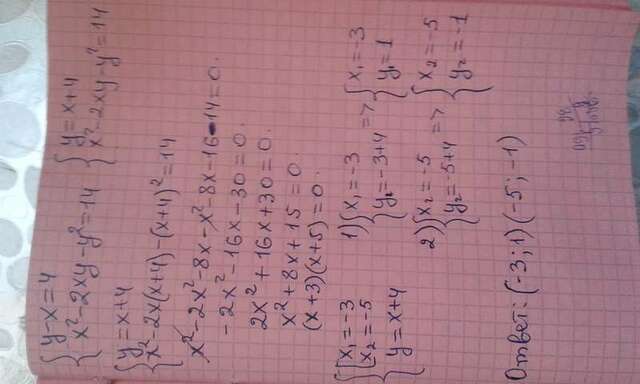 { y-x=4
x²-2xy-y²=14
{ y=x+4
x²-2xy-y²=14
{ y=x+4
x²-2x(x+4)-(x+4)²=14
x²-2x²-8x-x²-8x-16-14=0.
-2x²-16x-30=0.
2x²+16x+30=0.
x²+8x+15=0.
(x+3)(x+5)=0.
{ [ x₁=-3
x₂=-5
y=x+4
1) { x₁=-3
y₁=-3+4 => { x₁=-3
y₁=1
2) { x₂=-5
y₂=-5+4 => { x₂=-5
y₂=-1
Ответ: (-3;1) (-5;-1)